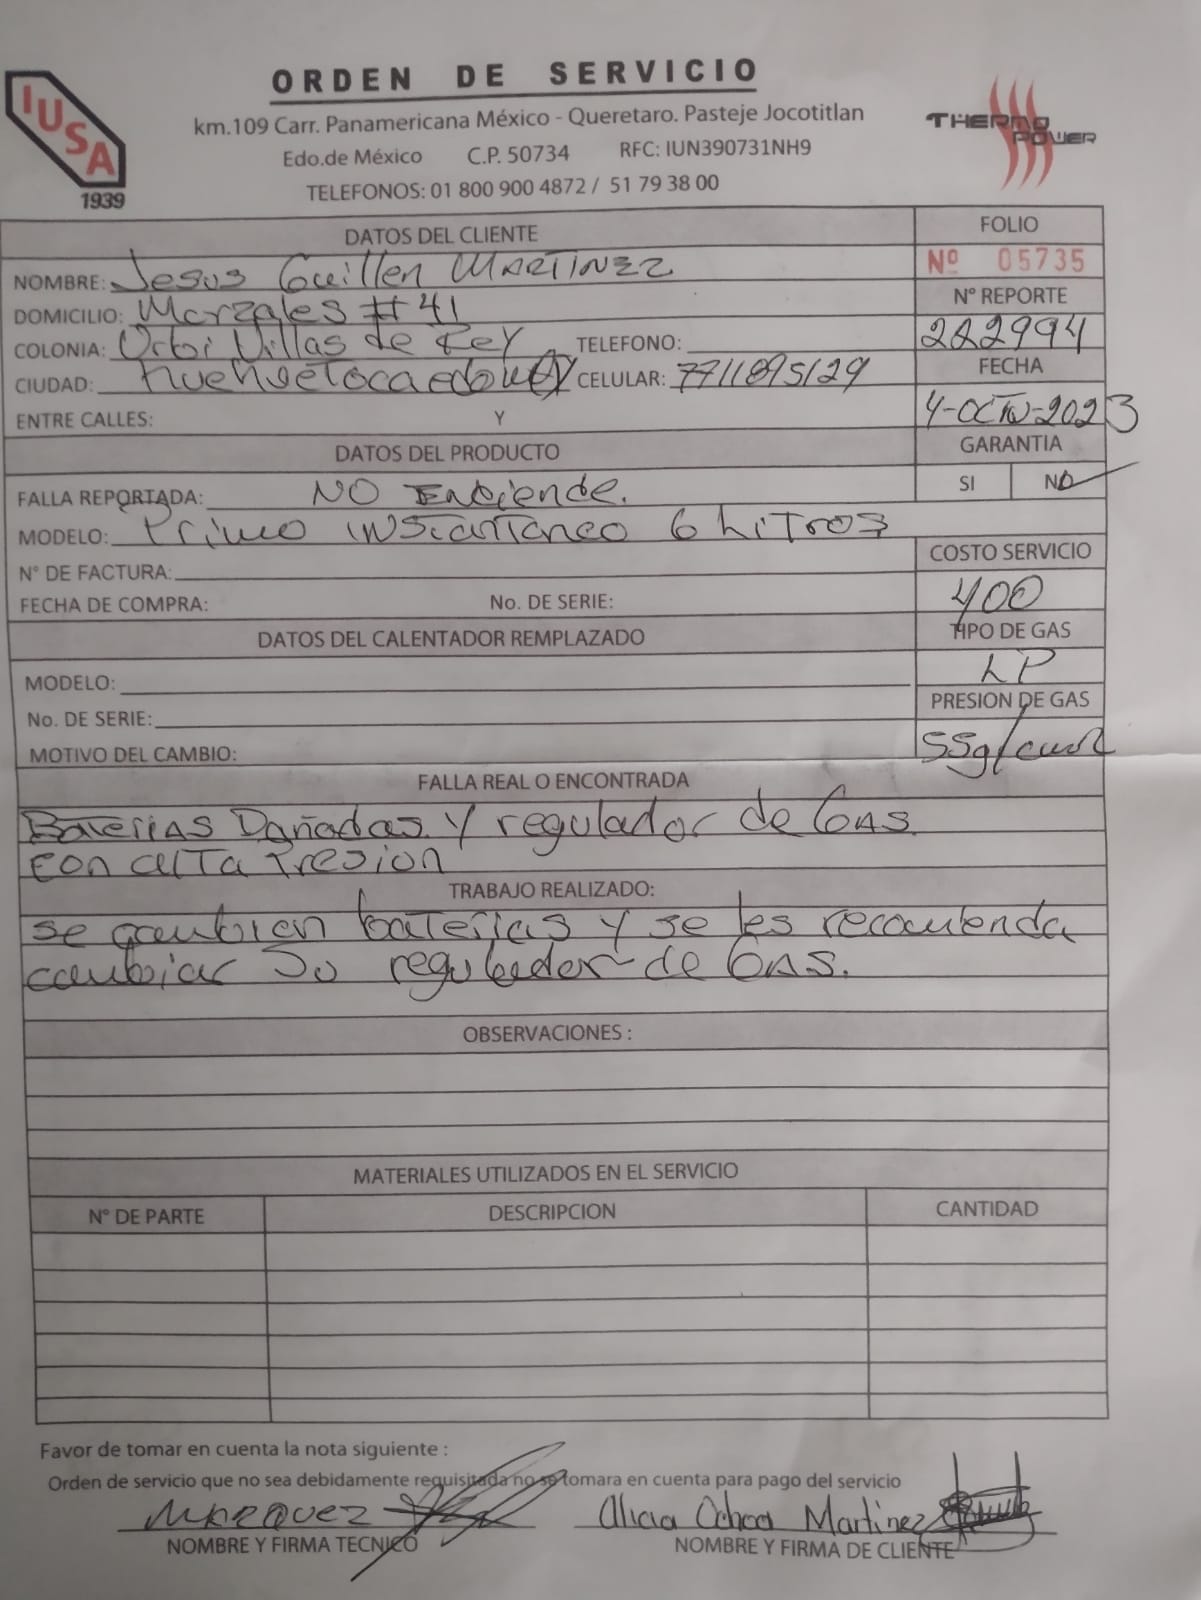 ORDEN DE SERVICIO
IUSA
1939
km.109 Carr. Panamericana México - Queretaro. Pasteje Jocotitlan
THERMO POWER
Edo.de México C.P. 50734 RFC: IUN390731NH9
TELEFONOS: 01 800 900 4872 / 51 79 38 00
DATOS DEL CLIENTE
FOLIO
Nº 05735
NOMBRE: Jesus Guillen MARTINEZ
Nº REPORTE
222994
DOMICILIO: Morzales #41
COLONIA: Urbi Villas de Rey TELEFONO:
FECHA
4-OCTU-2023
CIUDAD: huehuetoca edo CELULAR: 7711895129
ENTRE CALLES: Y
GARANTIA
SI NO
DATOS DEL PRODUCTO
FALLA REPORTADA: NO Enciende.
MODELO: Primo instantaneo 6 LiTROS
COSTO SERVICIO
400
N° DE FACTURA:
FECHA DE COMPRA: No. DE SERIE:
TIPO DE GAS
LP
DATOS DEL CALENTADOR REMPLAZADO
MODELO:
PRESION DE GAS
55g/cm2
No. DE SERIE:
MOTIVO DEL CAMBIO:
FALLA REAL O ENCONTRADA
Baterias Dañadas. Y regulador de GAS.
con alta Presion
TRABAJO REALIZADO:
se canbian baterias y se les recomienda
cambiar su regulador de GAS.
OBSERVACIONES :
MATERIALES UTILIZADOS EN EL SERVICIO
N° DE PARTE DESCRIPCION CANTIDAD
Favor de tomar en cuenta la nota siguiente :
Orden de servicio que no sea debidamente requisitada no se tomara en cuenta para pago del servicio
MARQUEZ
Alicia Ochoa Martinez
NOMBRE Y FIRMA TECNICO
NOMBRE Y FIRMA DE CLIENTE